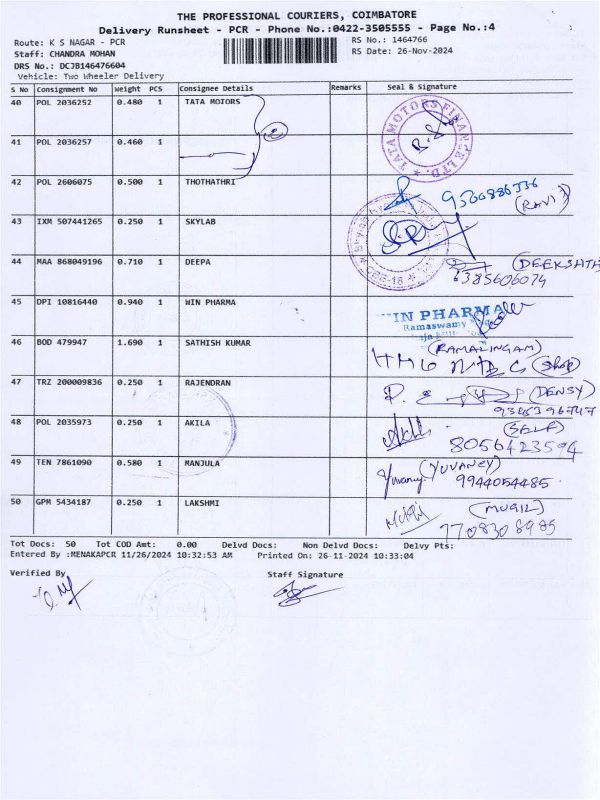 THE PROFESSIONAL COURIERS, COIMBATORE
Delivery Runsheet - PCR - Phone No.:0422-3505555 - Page No.:4
Route: K S NAGAR - PCR
RS No.: 1464766
Staff: CHANDRA MOHAN
RS Date: 26-Nov-2024
DRS No.: DCJB146476604
Vehicle: Two Wheeler Delivery
S No Consignment No Weight PCS Consignee Details Remarks Seal & Signature
40 POL 2036252 0.480 1 TATA MOTORS
TATA MOTORS FINANCE LTD.
41 POL 2036257 0.460 1
42 POL 2606075 0.500 1 THOTHATHRI
(RAVI)
43 IXM 507441265 0.250 1 SKYLAB
44 MAA 868049196 0.710 1 DEEPA (DEEKSHITH
6385606074
45 DPI 10816440 0.940 1 WIN PHARMA
WIN PHARMA
Ramaswamy
46 BOD 479947 1.690 1 SATHISH KUMAR (RAMALINGAM)
(Shop)
47 TRZ 200009836 0.250 1 RAJENDRAN (DENSY)
48 POL 2035973 0.250 1 AKILA (SELF)
8056423594
49 TEN 7861090 0.580 1 MANJULA (YUVANEY)
9944054485
50 GPM 5434187 0.250 1 LAKSHMI (MUGIL)
7708308985
Tot Docs: 50 Tot COD Amt: 0.00 Delvd Docs: Non Delvd Docs: Delvy Pts:
Entered By :MENAKAPCR 11/26/2024 10:32:53 AM Printed On: 26-11-2024 10:33:04
Verified By Staff Signature